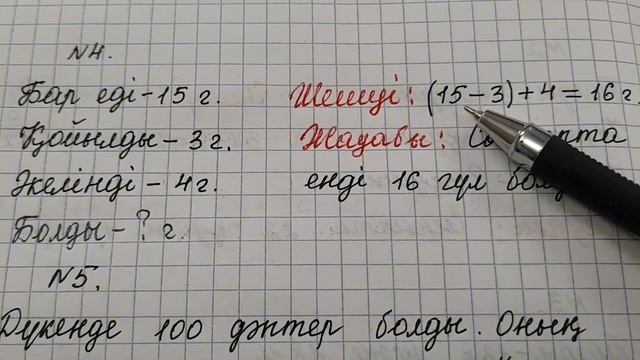 N4.
Бар еді - 15 г.
Қойылды - 3 г.
Әкелінді - 4 г.
Болды - ? г.
Шешуі: (15 - 3) + 4 = 16 г.
Жауабы:
енді 16 гүл
N5.
Дүкенде 100 дәптер болды. Оның